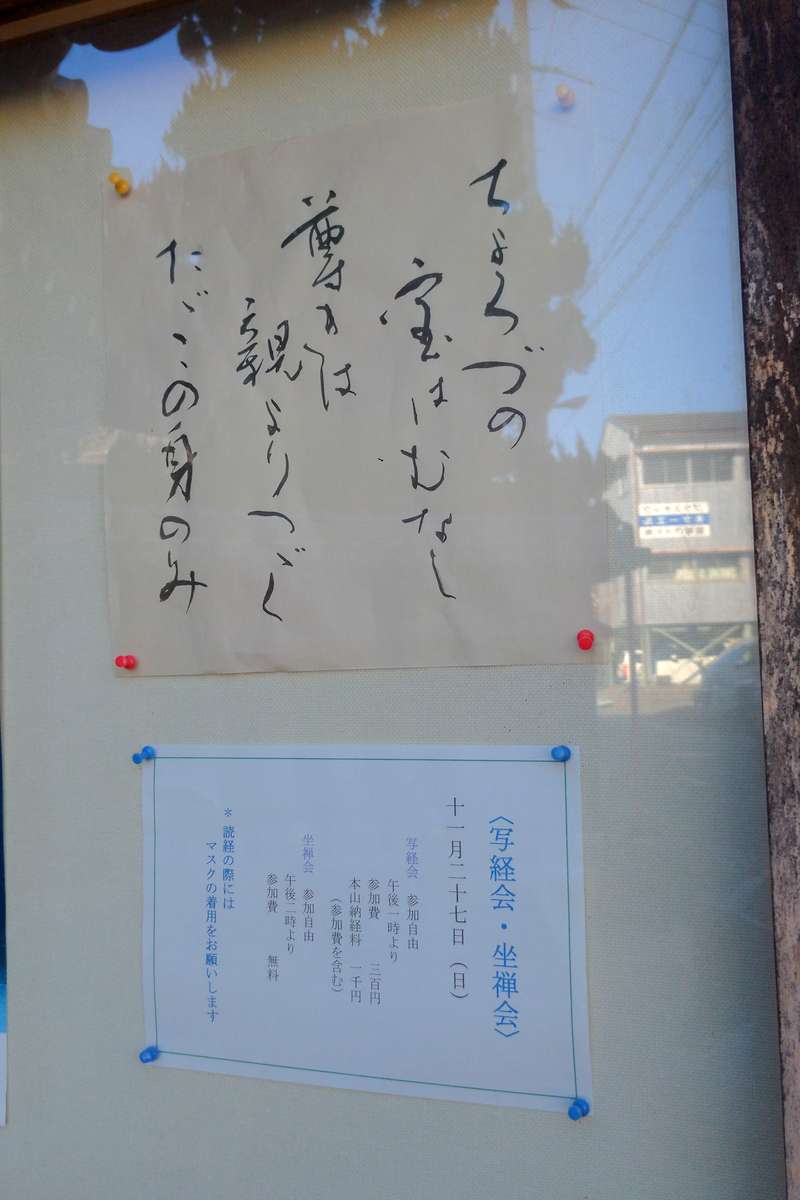 ちよろづの
宝はむなし
尊きは
親よりつゞく
たゞこの身のみ
〈写経会・坐禅会〉
十一月二十七日（日）
写経会　参加自由
午後一時より
参加費　三百円
本山納経料　一千円
（参加費を含む）
坐禅会　参加自由
午後二時より
参加費　無料
＊読経の際には
マスクの着用をお願いします